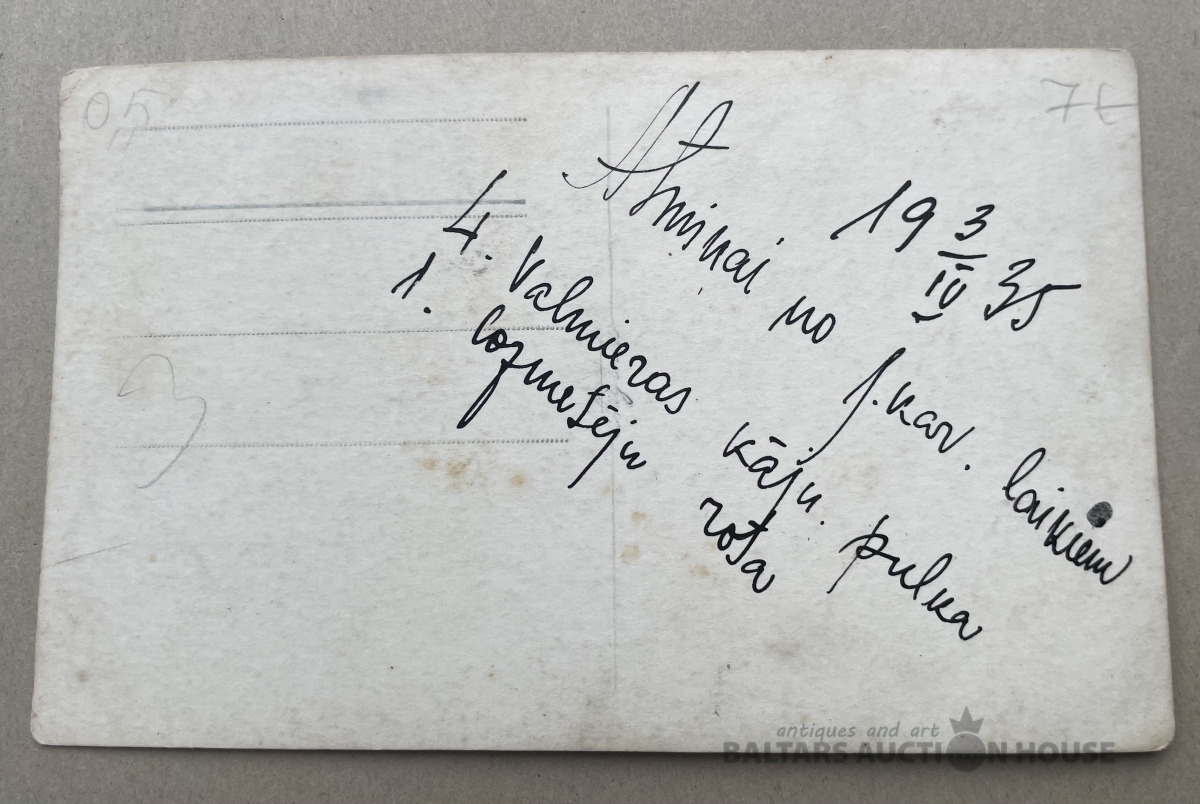 05
7t
19 3/IV 35
Atmiņai no j.kav. laikiem
4. Valmieras kāju. pulka
1. ložmetēju rota
3
antiques and art
BALTARS AUCTION HOUSE